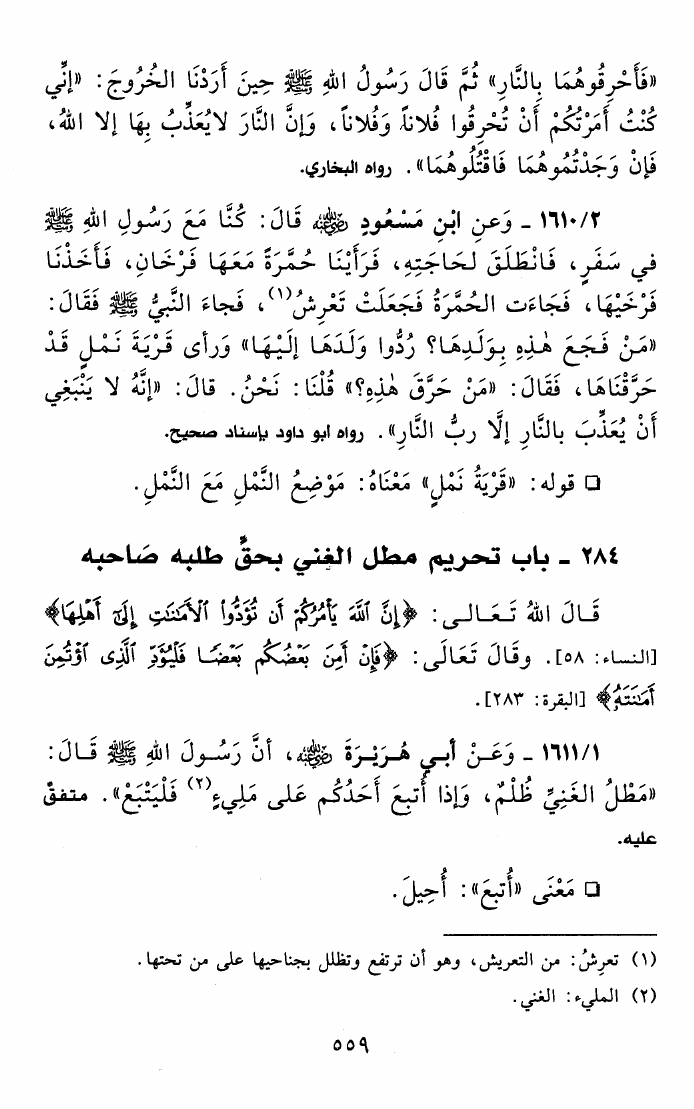 «فَأَحْرِقُوهُمَا بِالنَّارِ» ثُمَّ قَالَ رَسُولُ اللهِ ﷺ حِينَ أَرَدْنَا الخُرُوجَ: «إنِّي
كُنْتُ أَمَرْتُكُمْ أَنْ تُحْرِقُوا فُلاناً وَفُلاناً، وَإنَّ النَّارَ لايُعَذِّبُ بِهَا إلا اللهُ،
فَإنْ وَجَدْتُمُوهُمَا فَاقْتُلُوهُمَا». رواه البخاري.
١٦١٠/٢ ـ وَعَنِ ابْنِ مَسْعُودٍ رضي الله عنه قَالَ: كُنَّا مَعَ رَسُولِ اللهِ ﷺ
في سَفَرٍ، فَانْطَلَقَ لحَاجَتِهِ، فَرَأَيْنَا حُمَّرَةً مَعَهَا فَرْخَانِ، فَأَخَذْنَا
فَرْخَيْهَا، فَجَاءَتِ الحُمَّرَةُ فَجَعَلَتْ تَعْرِشُ(١)، فَجاءَ النَّبيُّ ﷺ فَقَالَ:
«مَنْ فَجَعَ هٰذِهِ بِوَلَدِهَا؟ رُدُّوا وَلَدَهَا إلَيْهَا» وَرأى قَرْيَةَ نَمْلٍ قَدْ
حَرَّقْنَاهَا، فَقَالَ: «مَنْ حَرَّقَ هٰذِهِ؟» قُلْنَا: نَحْنُ. قالَ: «إنَّهُ لا يَنْبَغِي
أَنْ يُعَذِّبَ بالنَّارِ إلَّا ربُّ النَّارِ». رواه ابو داود بإسناد صحيح.
❑ قوله: «قَرْيَةُ نَمْلٍ» مَعْنَاهُ: مَوْضِعُ النَّمْلِ مَعَ النَّمْلِ.
٢٨٤ ـ باب تحريم مطل الغني بحقٍّ طلبه صَاحبه
قَالَ اللهُ تَعَـالـى: ﴿إِنَّ ٱللَّهَ يَأْمُرُكُمْ أَن تُؤَدُّوا۟ ٱلْأَمَـٰنَـٰتِ إِلَىٰٓ أَهْلِهَا﴾
[النساء: ٥٨]. وقَالَ تَعَالَى: ﴿فَإِنْ أَمِنَ بَعْضُكُم بَعْضًا فَلْيُؤَدِّ ٱلَّذِى ٱؤْتُمِنَ
أَمَـٰنَتَهُۥ﴾ [البقرة: ٢٨٣].
١٦١١/١ ـ وَعَـنْ أبـي هُـرَيْـرَةَ رضي الله عنه، أنَّ رَسُـولَ اللهِ ﷺ قَـالَ:
«مَطْلُ الغَنِيِّ ظُلْمٌ، وَإذا أُتبِعَ أَحَدُكُم عَلى مَلِيءٍ(٢) فَلْيَتْبَعْ». متفقٌ
عليه.
❑ مَعْنَى «أُتبعَ»: أُحِيلَ.
(١) تعرِشُ: من التعريش، وهو أن ترتفع وتظلل بجناحيها على من تحتها.
(٢) المليء: الغني.
٥٥٩